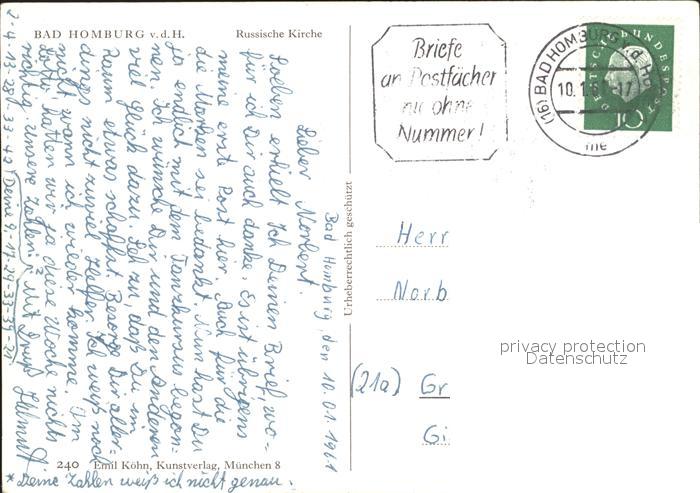 BAD HOMBURG v. d. H. Russische Kirche
Briefe
an Postfächer
nie ohne
Nummer!
(16) BAD HOMBURG v. d. Höhe
10.1.61.-17
DEUTSCHE BUNDESPOST
10
Bad Homburg, den 10.01.1961
Lieber Norbert.
Soeben erhielt Ich Deinen Brief, wo-
für ich Dir auch danke. Es ist übrigens
meine erste Post hier. Auch für die
die Marken sei bedankt. Nun hast Du
ja endlich mit dem Tanzkursus begon-
nen. Ich wünsche Dir und den anderen
viel Glück dazu. Seh zu, daß Du im
Raum etwas schaffst. Besorge Dir aller-
dings nicht zuviel Helfer. Ich weiß noch
nicht wann ich wieder komme. Im
Lotto hatten wir ja diese Woche nichts
richtig. Unsere Zahlen: Mit Gruß Helmut
2-4-13-38-33-42 (Deine 9-17-24-33-39-21
* Deine Zahlen weiß ich nicht genau.
Urheberrechtlich geschützt
Herr
Norb
(21a) Gr
Gi
privacy protection
Datenschutz
240 Emil Köhn, Kunstverlag, München 8